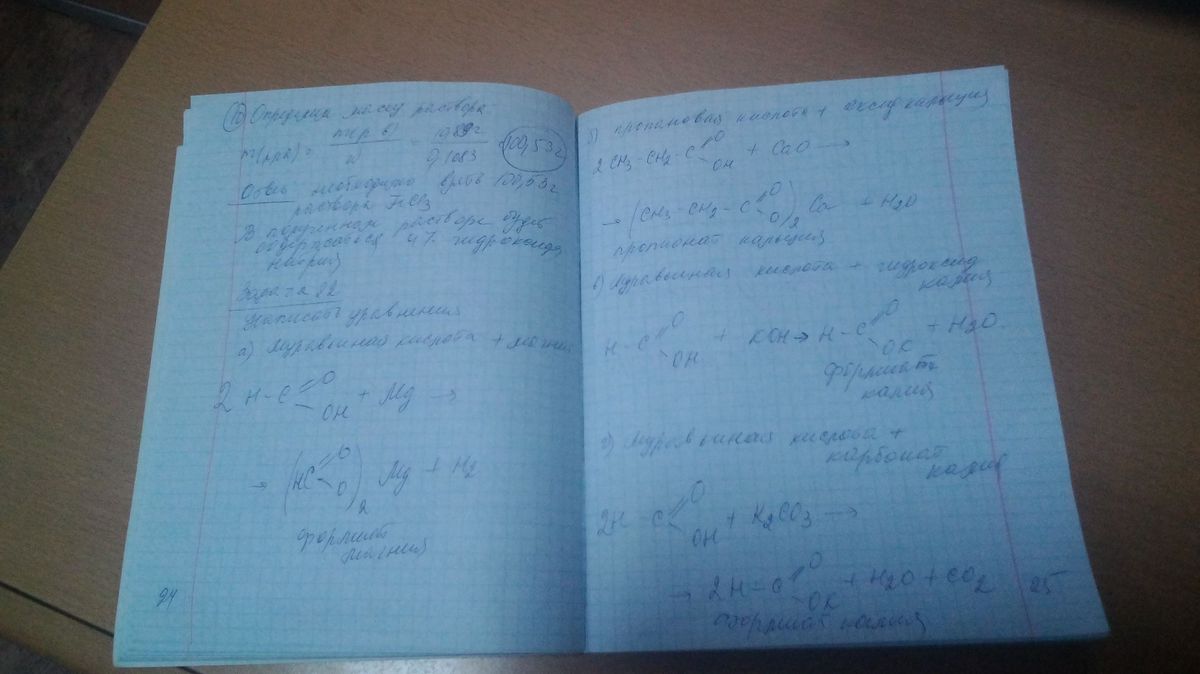 10 Определим массу раствора
m(р-ра) = m р.в / w = / 0,1083 = 100,53 г
Ответ необходимо взять 100,53 г
раствора FeCl3
В полученном растворе будет
содержаться 4% гидроксида
натрия
Задача 22
Написать уравнения
а) Муравьиная кислота + магний
2 H-C =O OH + Mg →
→ (HC =O O)2 Mg + H2
формиат
магния
24
б) пропановая кислота + оксид кальция
2 CH3-CH2-C =O OH + CaO →
→ (CH3-CH2-C =O O)2 Ca + H2O
пропионат кальция
в) Муравьиная кислота + гидроксид
калия
H-C =O OH + KOH → H-C =O OK + H2O
формиат
калия
г) Муравьиная кислота +
карбонат
калия
2H C =O OH + K2CO3 →
→ 2H-C =O OK + H2O + CO2
формиат калия
25